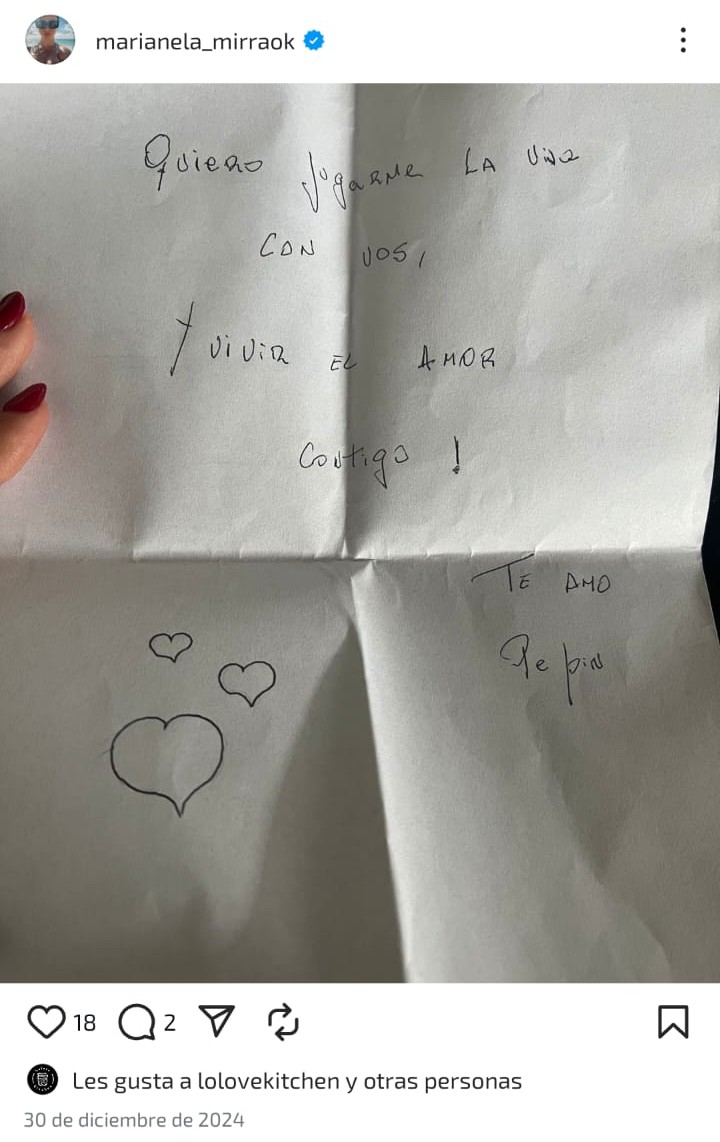 marianela_mirraok
Quiero Jugarme LA Vida
CON VOS,
Y ViViR EL AMOR
Contigo !
TE AMO
Pepin
18
2
Les gusta a lolovekitchen y otras personas
30 de diciembre de 2024